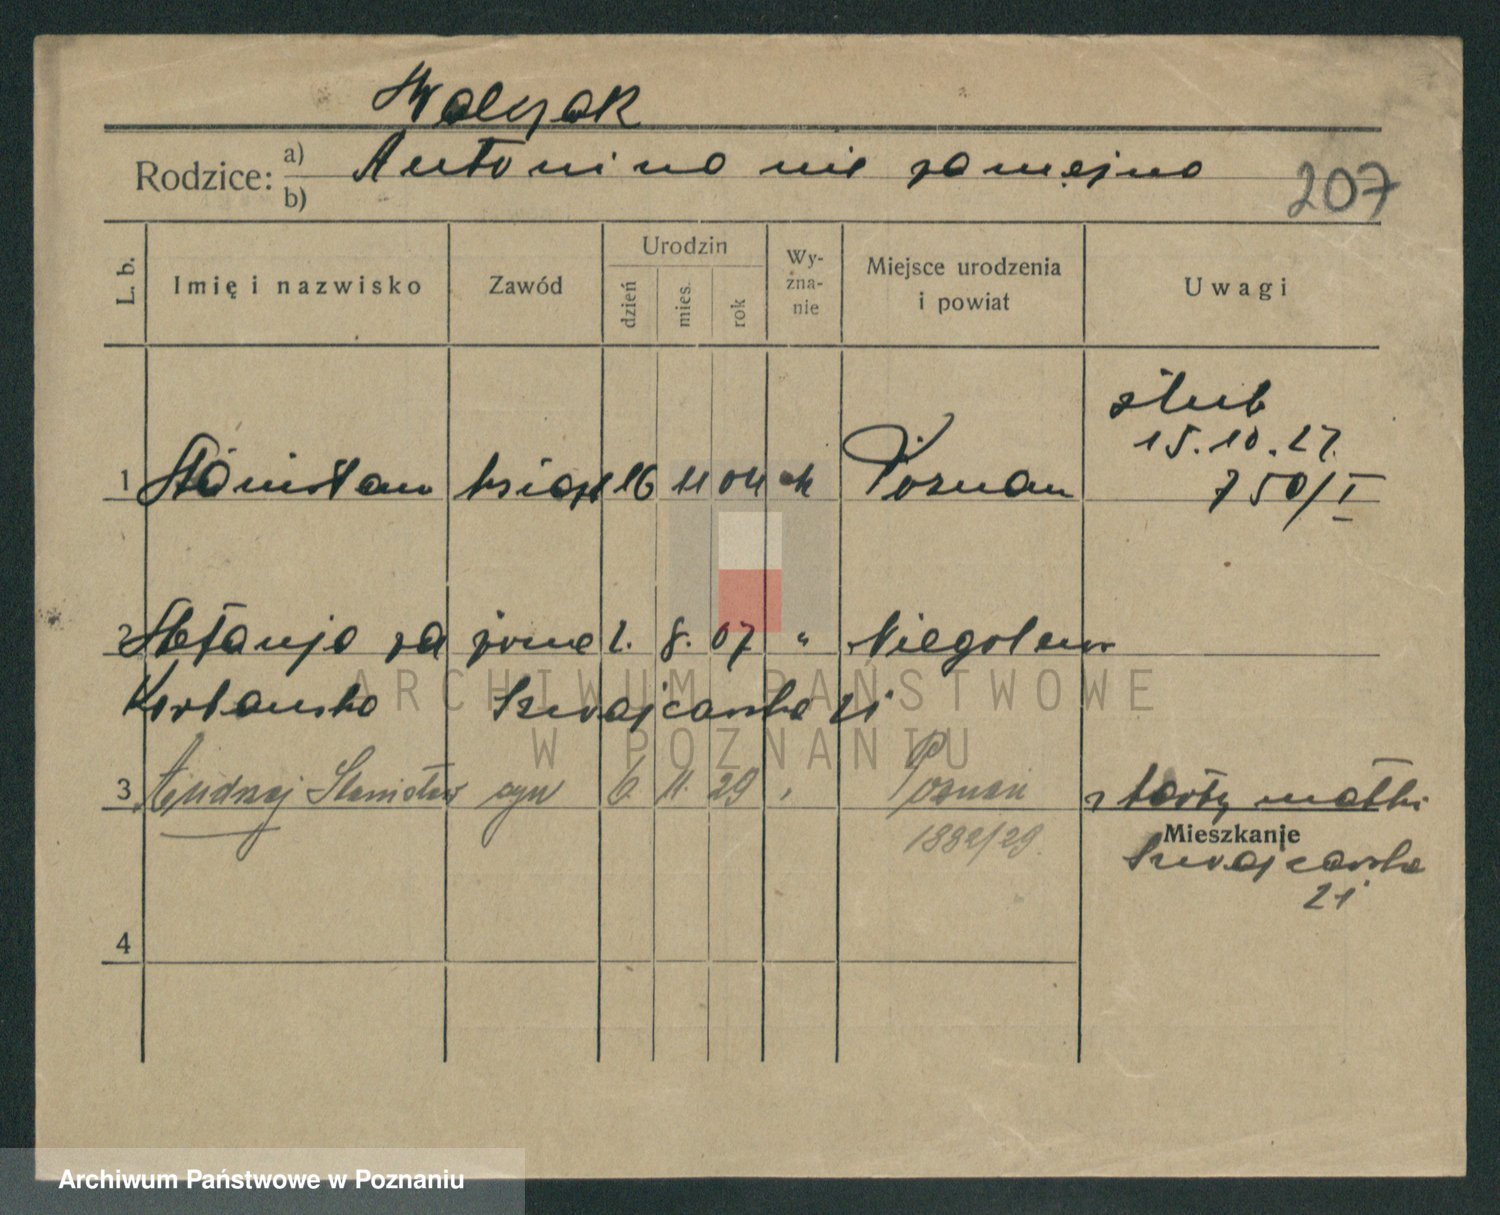 Walczak
Rodzice: a) Antonina nie zamężna
b)
207
L. b. Imię i nazwisko Zawód Urodzin dzień mies. rok Wyzna-nie Miejsce urodzenia i powiat Uwagi
ślub
15.10.27.
750/I
1 Stanisław 16 11 04 Poznań
2 Stefanja za 1. 8. 07 " Niegolewo
Szwajcarska 21
3 Andrzej Stanisław syn 6. 11. 29 Poznań z karty matki
1882/29.
Mieszkanie
Szwajcarska
21
4
ARCHIWUM PAŃSTWOWE
W POZNANIU
Archiwum Państwowe w Poznaniu